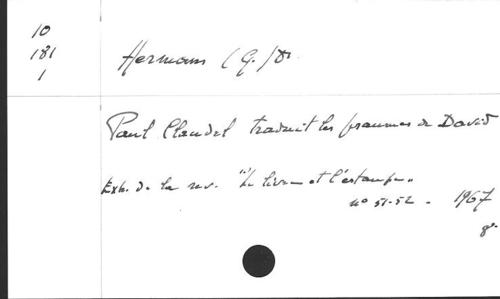 10
181
1
Hermans (G.) Dr
Paul Claudel traduit les psaumes de David
Extr. de la rev. "Le livre et l'estampe"
n° 51-52 - 1967
8°